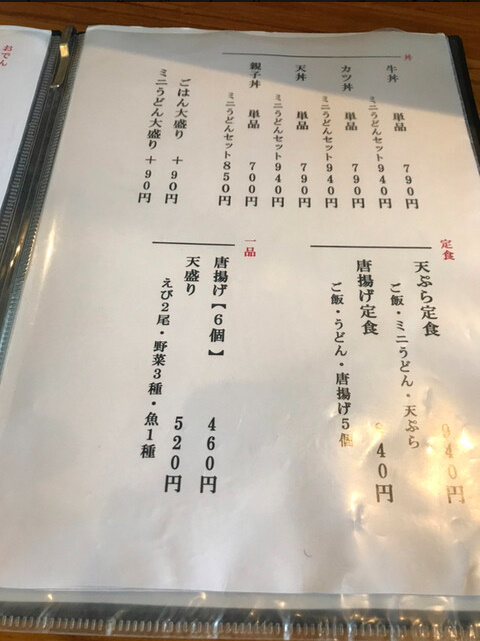 丼
牛丼
単品 790円
ミニうどんセット940円
カツ丼
単品 790円
ミニうどんセット940円
天丼
単品 790円
ミニうどんセット940円
親子丼
単品 700円
ミニうどんセット850円
ごはん大盛り +90円
ミニうどん大盛り +90円
定食
天ぷら定食 940円
ご飯・ミニうどん・天ぷら
唐揚げ定食 940円
ご飯・うどん・唐揚げ5個
一品
唐揚げ【6個】 460円
天盛り 520円
えび2尾・野菜3種・魚1種
おでん